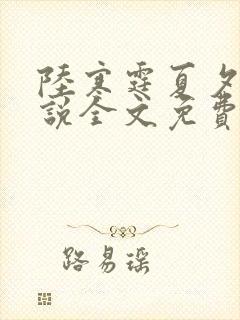 陸寒霆夏夕
說全文免費
路易瑶